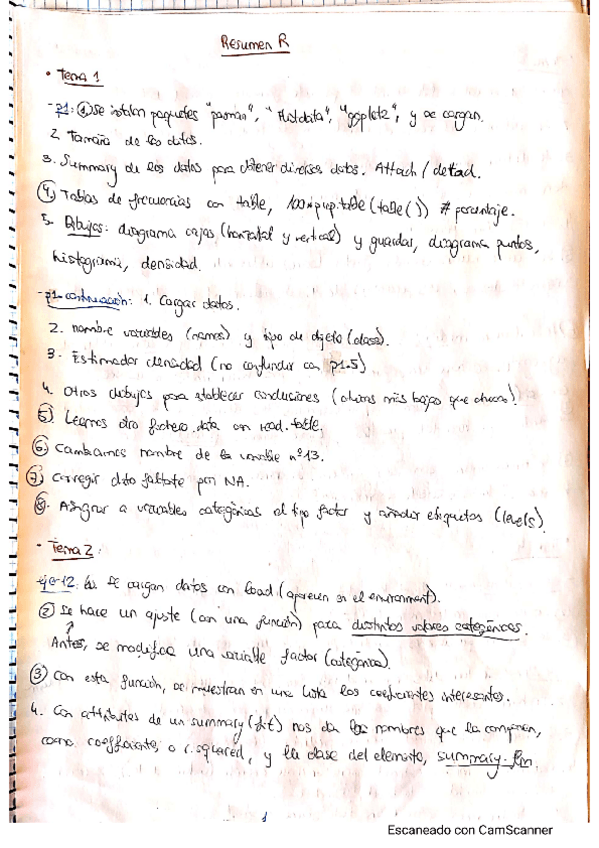 Resumen R
• Tema 1
- p1: ① Se instalan paquetes "pasmas", "Hotdata", "ggplot2", y se cargan.
2. Tamaño de los datos.
3. Summary de los datos para obtener diversos datos. Attach / detach.
④ Tablas de frecuencias con table, 100*prop.table(table()) # porcentaje.
5. Dibujos: diagrama cajas (horizontal y vertical) y guardar, diagrama puntos,
histograma, densidad.
- p1-continuación: 1. Cargar datos.
2. nombre variables (names) y tipo de objeto (class).
3. Estimador densidad (no confundir con p1.5)
4. Otros dibujos para establecer conclusiones (chicas más bajas que chicos).
⑤. Leemos otro fichero.data con read.table.
⑥ Cambiamos nombre de la variable nº13.
⑦ Corregir dato faltante por NA.
⑧. Asignar a variables categóricas el tipo factor y añadir etiquetas (levels).
• Tema 2:
eje-12: Se cargan datos con load (aparecen en el environment).
② Se hace un ajuste (con una función) para distintos valores categóricos.
Antes, se modifica una variable factor (categórica).
③ Con esta función, se muestran en una lista los coeficientes interesantes.
4. Con attributes de un summary(fit) nos da los nombres que la componen,
como coefficients, o r.squared, y la clase del elemento, summary.lm
1
Escaneado con CamScanner